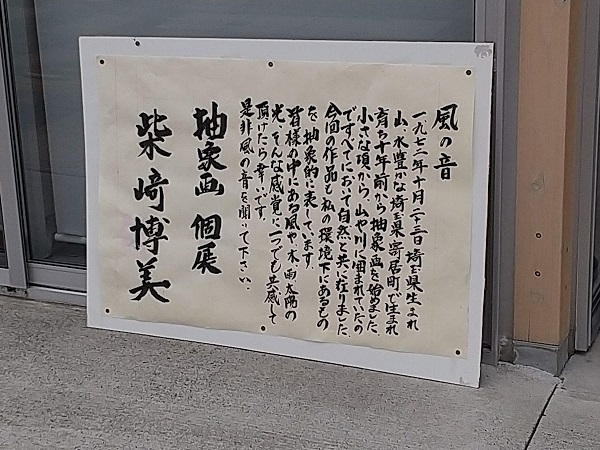 風の音
一九七二年十月二十三日埼玉県生まれ
山、水豊かな埼玉県寄居町で生まれ
育ち十年前から抽象画を始めました。
小さな頃から、山や川に囲まれていたの
ですべてにおいて自然と共に在りました。
今回の作品も私の環境下にあるもの
を、抽象的に表しています。
皆様の中にある風や、木、雨、太陽の
光、そんな感覚に一つでも共感して
頂けたら幸いです。
是非風の音を聞いて下さい。
抽象画 個展
柴﨑博美